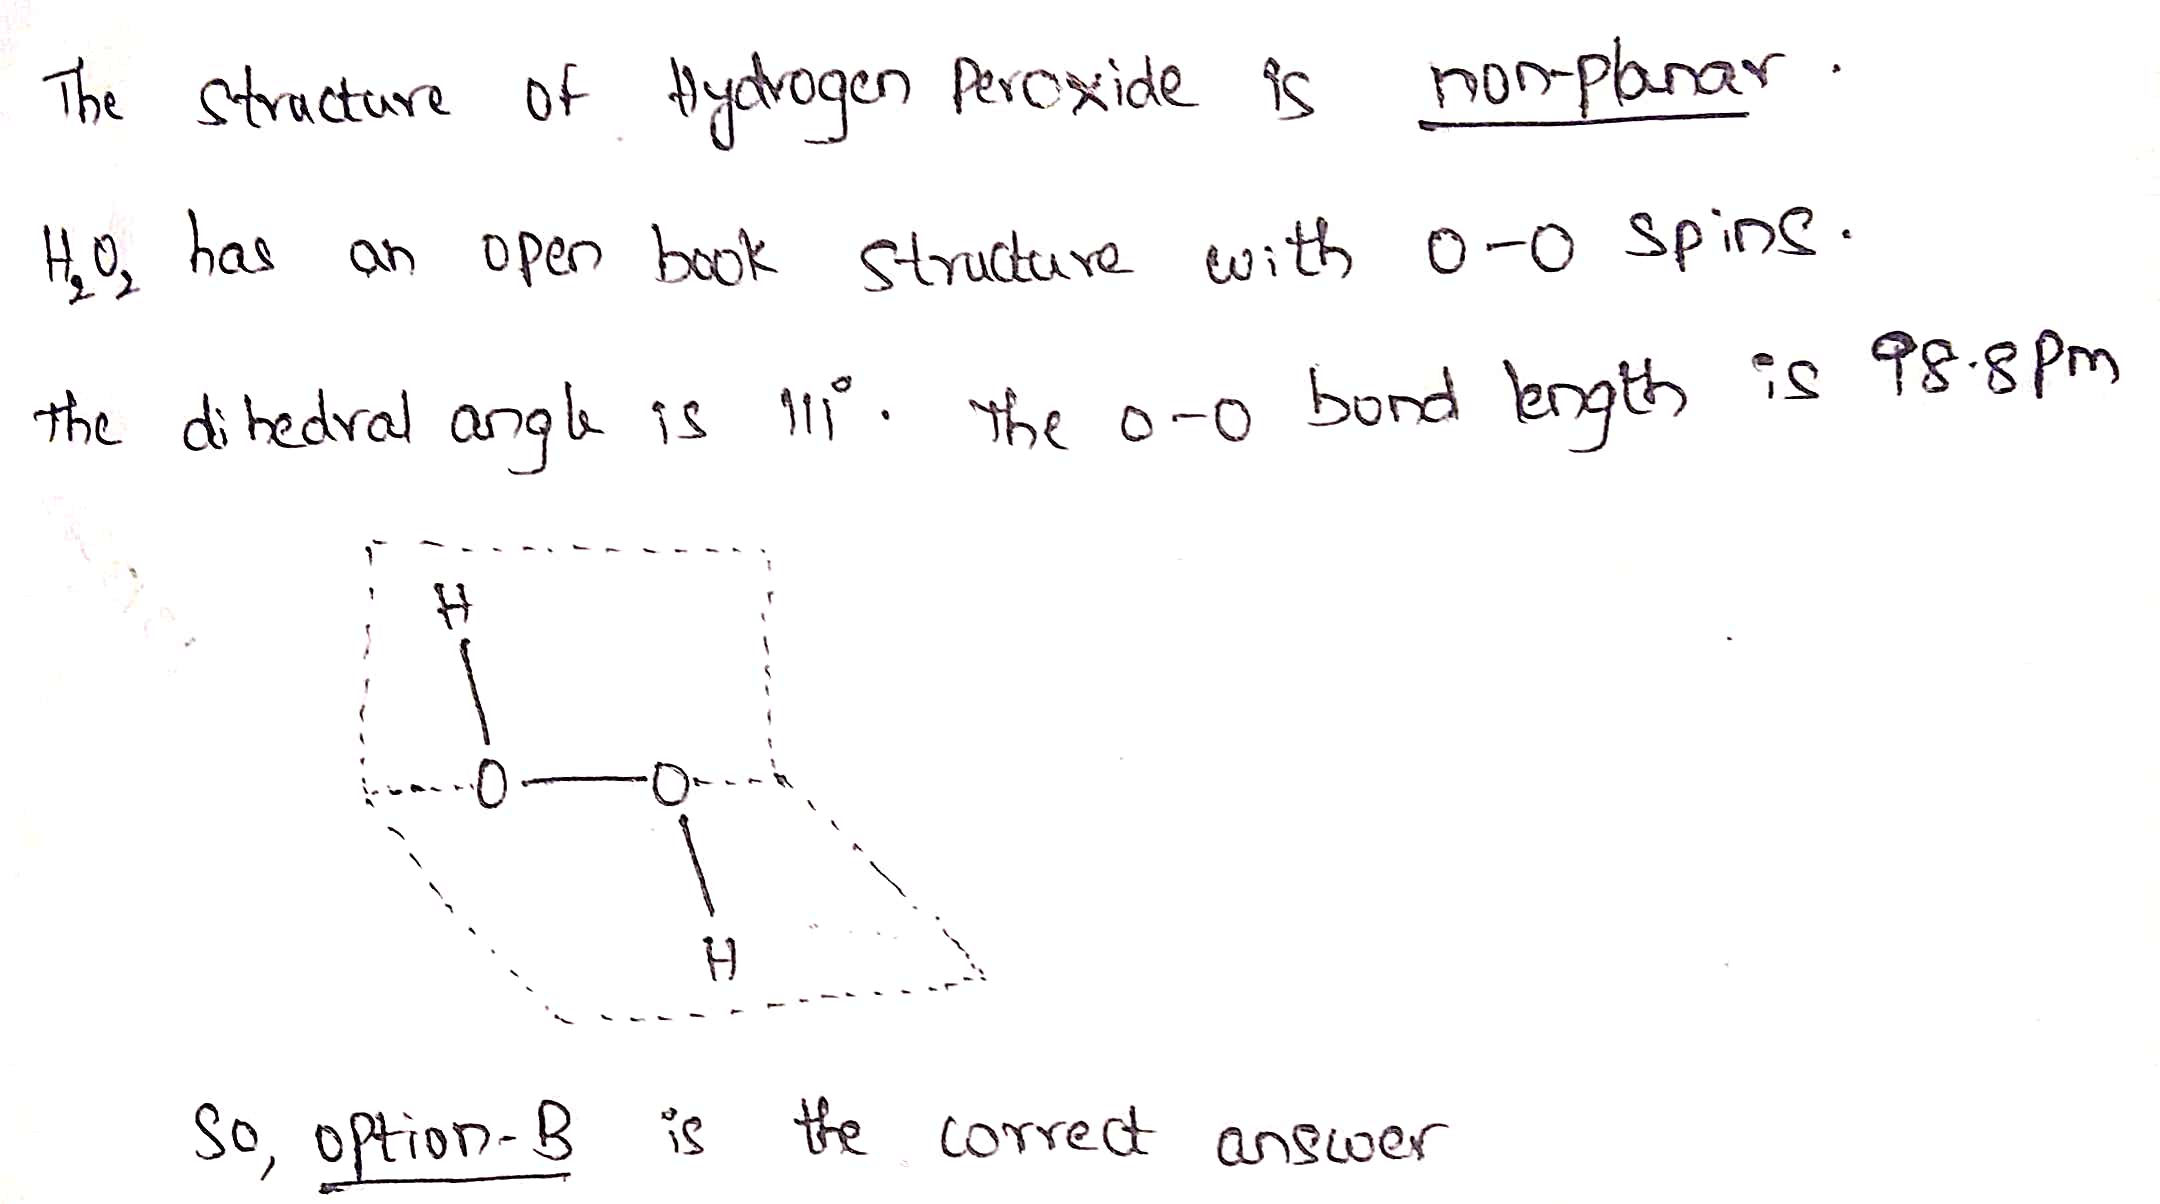 The structure of Hydrogen Peroxide is non-planar.
H₂O₂ has an open book structure with O-O spins.
the dihedral angle is 111°. The O-O bond length is 98.8pm
H
O O
H
So, option-B is the correct answer